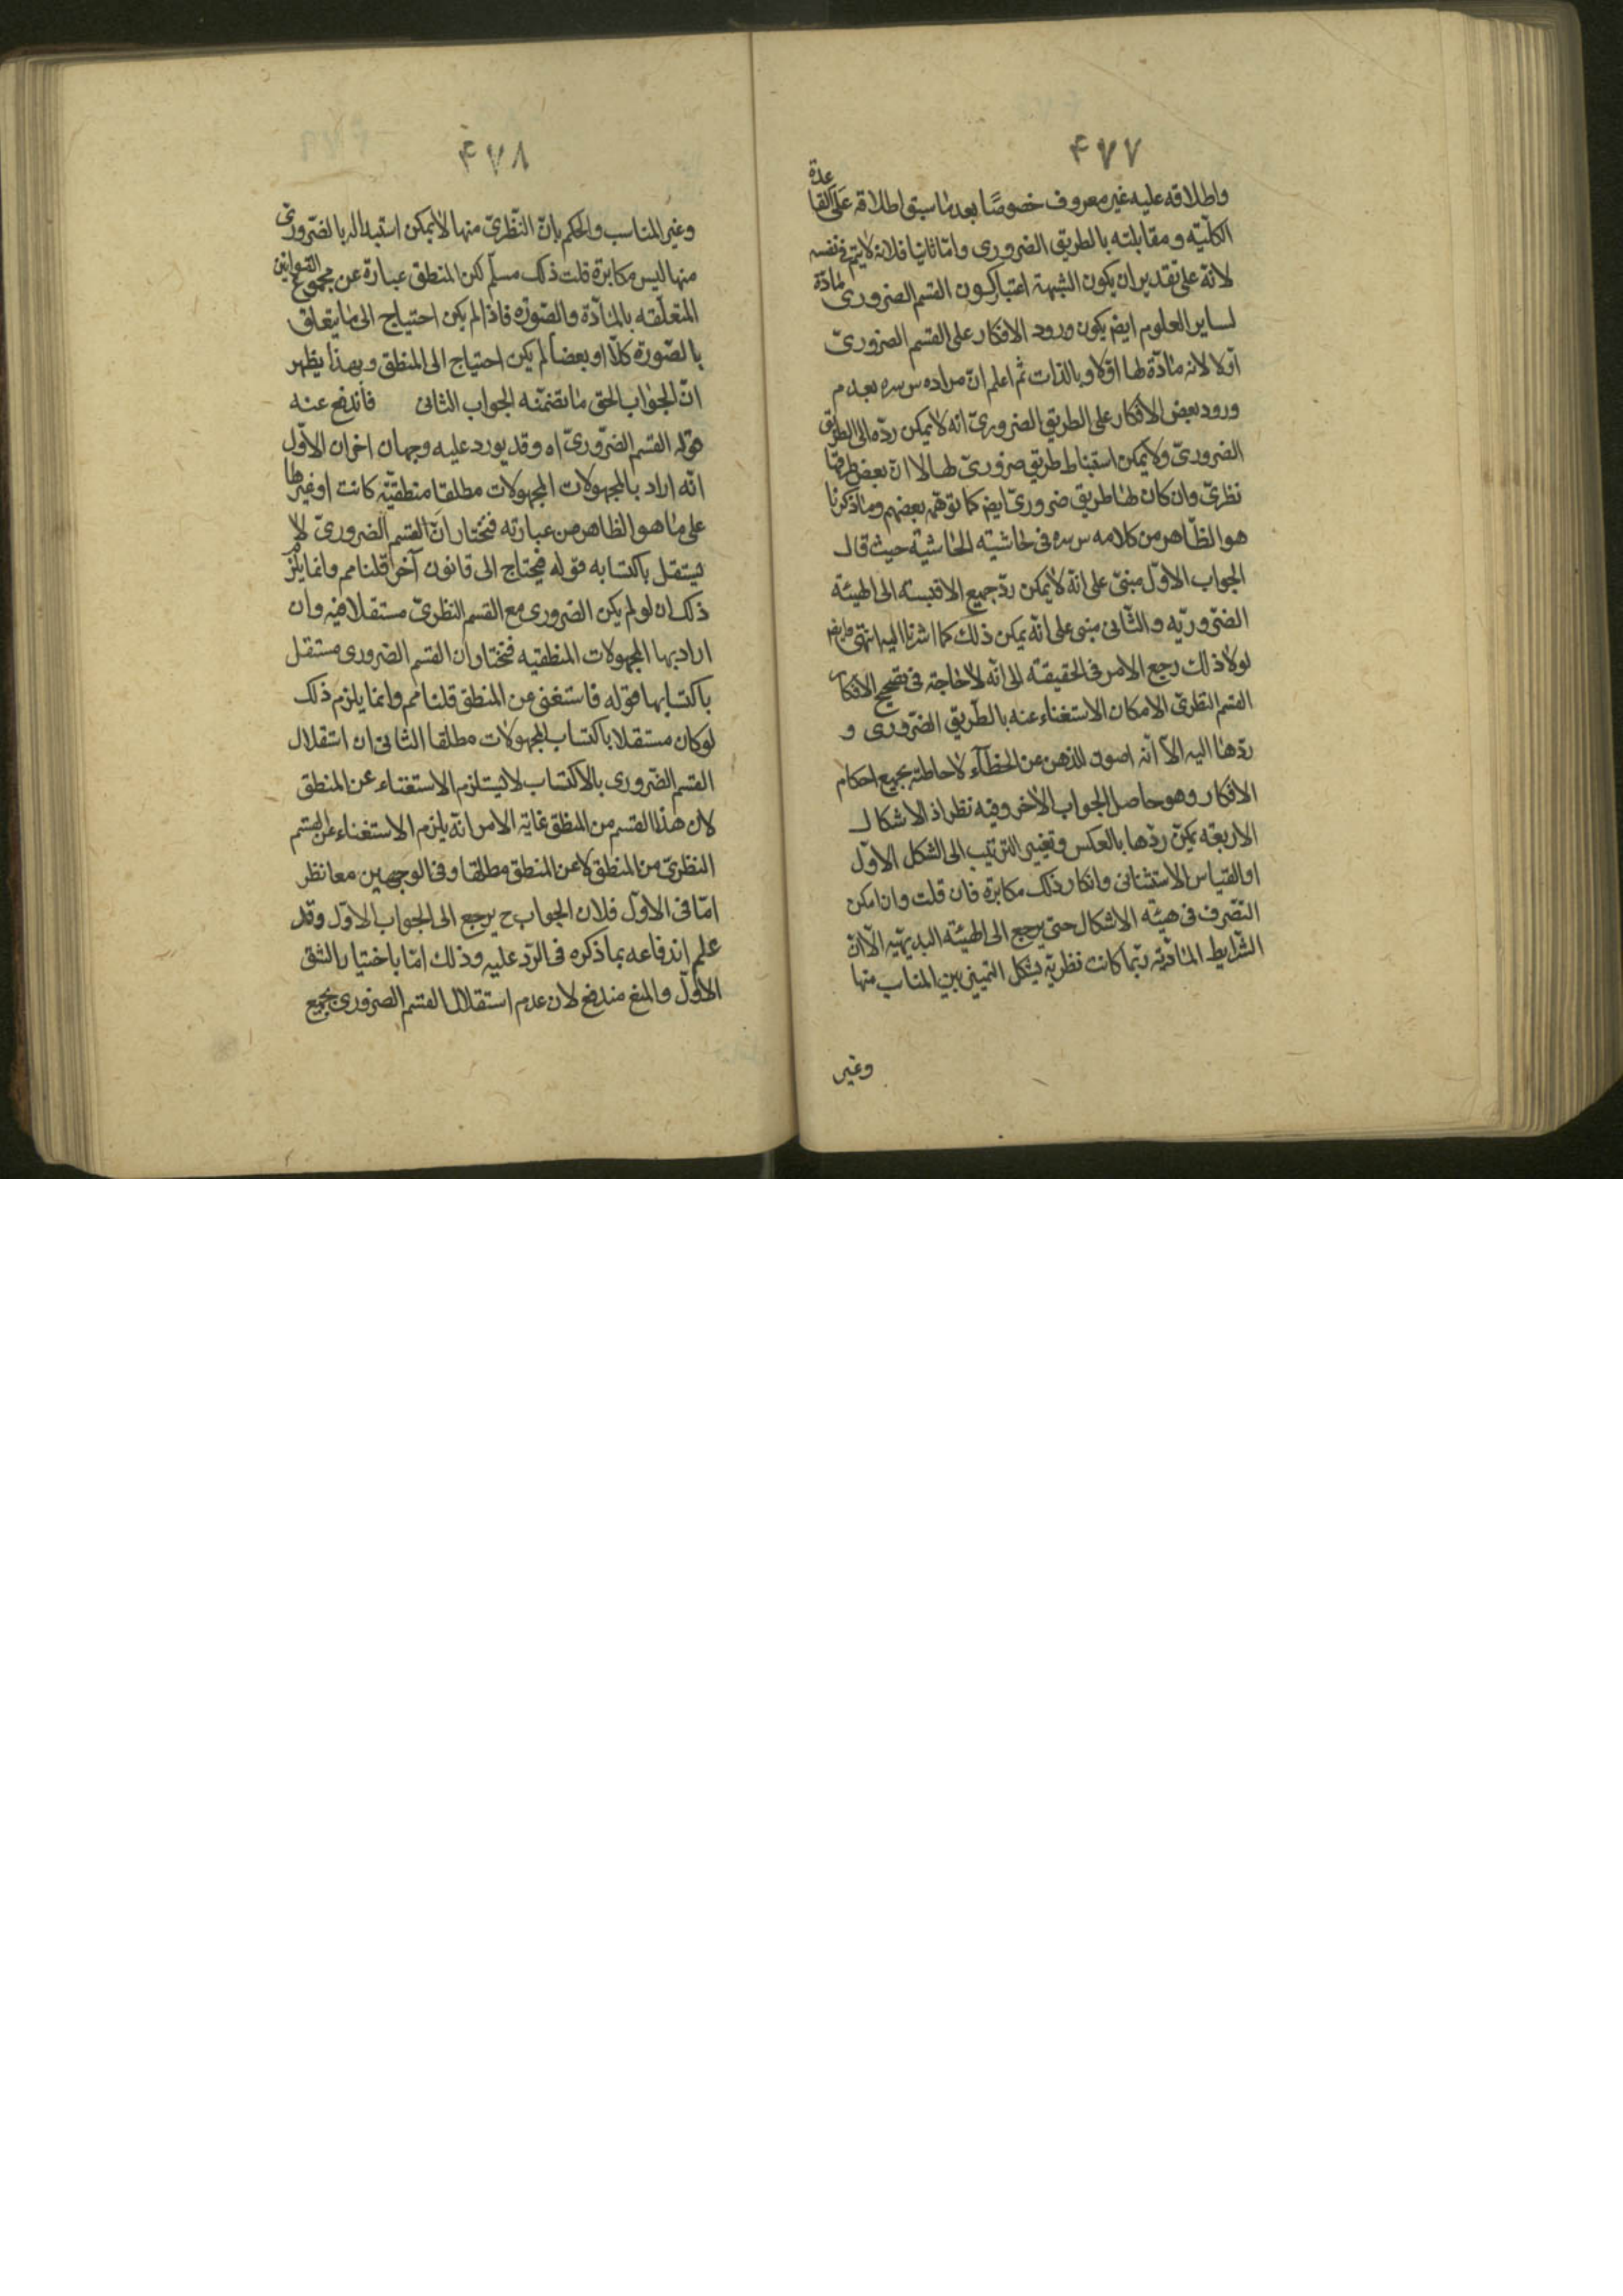 ۴۷۷
واطلاقه عليه غير معروف خصوصًا بعد ما سبق اطلاقه على القاعدة
الكليّه ومقابلته بالطريق الضرورى وامّا ثانيا فلانه لايتم فى نفسه
لانه على تقدير ان يكون الشبهة اعتبار كون القسم الضرورى مادّة
لساير العلوم ايض يكون ورود الافكار على القسم الضرورىّ
اوّلا لانه مادّة لها اوّلا وبالذات ثم اعلم ان مراده س سره بعدم
ورود بعض الافكار على الطريق الضرورىّ انه لايمكن ردّه الى الطريق
الضرورىّ ولايمكن استنباط طريق ضرورىّ لها لا ان بعض طرقها
نظرىّ وان كان لها طريق ضرورىّ ايض كما توهّمه بعضهم وما ذكرنا
هو الظاهر من كلامه س سره فى حاشية الحاشية حيث قال
الجواب الاوّل مبنىّ على انّه لايمكن ردّ جميع الاقيسة الى الهيئة
الضّروريّه والثانى مبنى على انّه يمكن ذلك كما اشرنا اليه انتهى وايض
لولا ذلك رجع الامر فى الحقيقة الى انّه لاحاجة فى تصحيح الافكار
القسم النظرىّ لامكان الاستغناء عنه بالطّريق الضّرورى و
ردّها اليه الّا انه اصون للذهن عن الخطاء لاحاطته بجميع احكام
الافكار وهو حاصل الجواب الآخر وفيه نظر اذ الاشكال
الاربعة يمكن ردّها بالعكس وتغيير الترتيب الى الشكل الاوّل
او القياس الاستثنائى وانكار ذلك مكابرة فان قلت وان امكن
التصّرف فى هيئة الاشكال حتى يرجع الى الهيئة البديهيّه الّا ان
الشّرايط المادّية ربّما كانت نظريّة يشكل التميز بين المناسب منها
وغير
۴۷۸
وغير المناسب والحكم بانّ النّظرىّ منها لايمكن استبداله بالضّرورىّ
منها ليس مكابرة قلت ذلك مسلّم لكن المنطق عبارة عن مجموع القوانين
المتعلّقه بالمادّة والصّورة فاذا لم يكن احتياج الى ما يتعلق
بالصّورة كلّا او بعضا لم يكن احتياج الى المنطق وبهذا يظهر
انّ الجواب الحق ما تضمّنه الجواب الثانى فاندفع عنه
قوله القسم الضّرورىّ اه وقد يورد عليه وجهان اخران الاوّل
انّه اراد بالمجهولات المجهولات مطلقا منطقيّة كانت او غيرها
على ما هو الظاهر من عبارته فنختار انّ القسم الضرورىّ لا
يستقل باكتسابه قوله فيحتاج الى قانون آخر قلنا مم وانما يلزم
ذلك ان لو لم يكن الضرورى مع القسم النظرىّ مستقلا فيه وان
اراد بها المجهولات المنطقيه فنختار ان القسم الضرورى مستقل
باكتسابها قوله فاستغنى عن المنطق قلنا مم وانما يلزم ذلك
لو كان مستقلا باكتساب المجهولات مطلقا الثانى ان استقلال
القسم الضّرورى بالاكتساب لايستلزم الاستغناء عن المنطق
لان هذا القسم من المنطق غاية الامر انّه يلزم الاستغناء عن القسم
النظرىّ من المنطق لا عن المنطق مطلقا وفى الوجهين معا نظر
امّا فى الاوّل فلان الجواب ح يرجع الى الجواب الاوّل وقد
علم اندفاعه بما ذكره فى الرّد عليه وذلك امّا باختيار الشق
الاوّل والمنع مندفع لان عدم استقلال القسم الضرورى بجميع